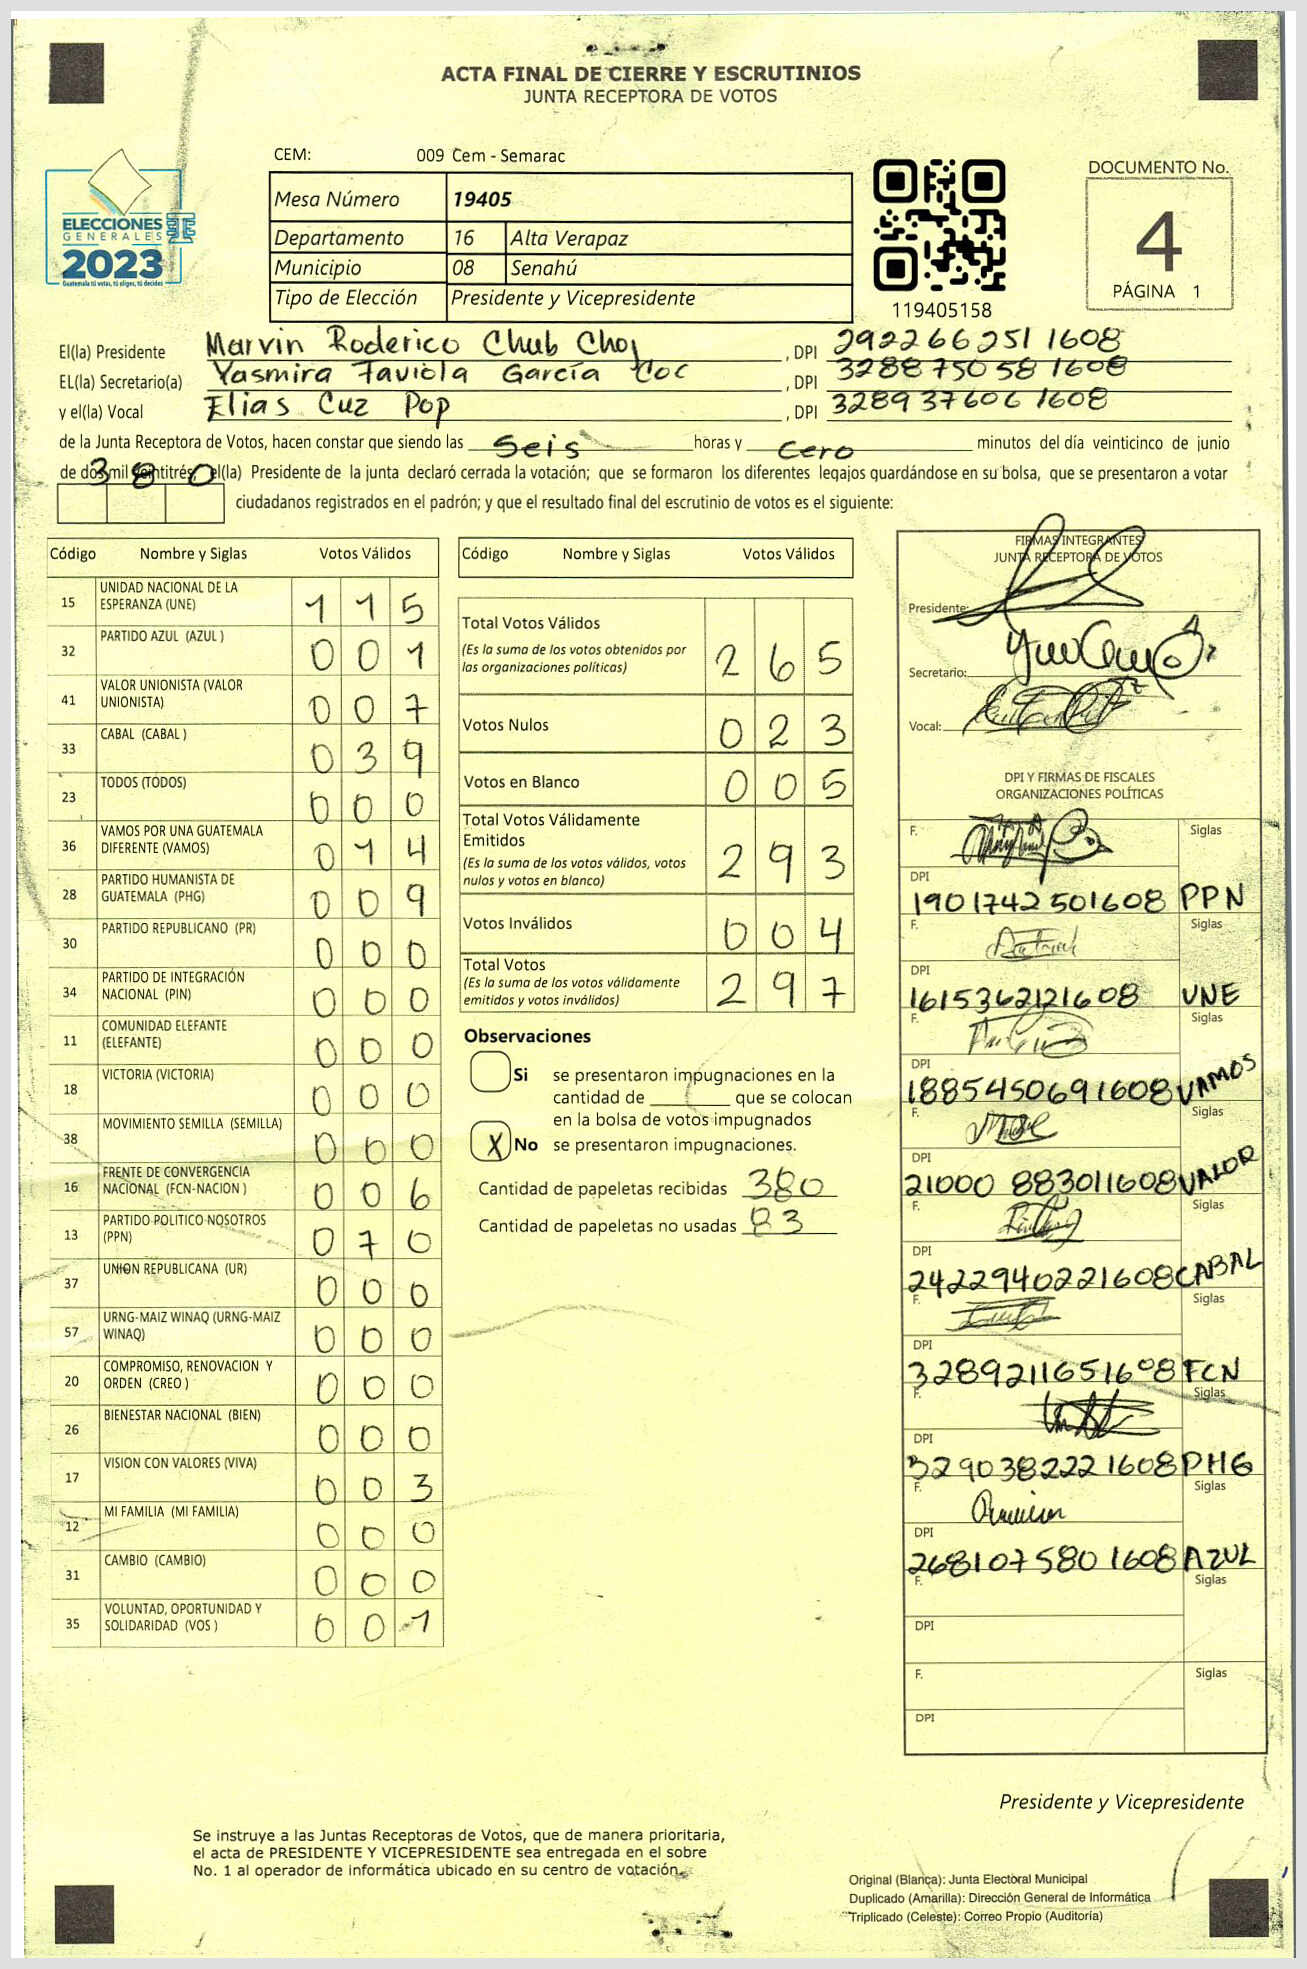 ACTA FINAL DE CIERRE Y ESCRUTINIOS
JUNTA RECEPTORA DE VOTOS
CEM: 009 Cem - Semarac
ELECCIONES
GENERALES
2023
Guatemala tú votas, tú eliges, tú decides
Mesa Número 19405
Departamento 16 Alta Verapaz
Municipio 08 Senahú
Tipo de Elección Presidente y Vicepresidente
119405158
DOCUMENTO No.
4
PÁGINA 1
El(la) Presidente Marvin Roderico Chub Choj , DPI 2922662511608
EL(la) Secretario(a) Yasmira Faviola García Coc , DPI 3288750581608
y el(la) Vocal Elias Cuz Pop , DPI 3289376061608
de la Junta Receptora de Votos, hacen constar que siendo las Seis horas y Cero minutos del día veinticinco de junio
de dos mil veintitrés el(la) Presidente de la junta declaró cerrada la votación; que se formaron los diferentes legajos guardándose en su bolsa, que se presentaron a votar
380 ciudadanos registrados en el padrón; y que el resultado final del escrutinio de votos es el siguiente:
Código Nombre y Siglas Votos Válidos
15 UNIDAD NACIONAL DE LA ESPERANZA (UNE) 115
32 PARTIDO AZUL (AZUL ) 001
41 VALOR UNIONISTA (VALOR UNIONISTA) 007
33 CABAL (CABAL ) 039
23 TODOS (TODOS) 000
36 VAMOS POR UNA GUATEMALA DIFERENTE (VAMOS) 014
28 PARTIDO HUMANISTA DE GUATEMALA (PHG) 009
30 PARTIDO REPUBLICANO (PR) 000
34 PARTIDO DE INTEGRACIÓN NACIONAL (PIN) 000
11 COMUNIDAD ELEFANTE (ELEFANTE) 000
18 VICTORIA (VICTORIA) 000
38 MOVIMIENTO SEMILLA (SEMILLA) 000
16 FRENTE DE CONVERGENCIA NACIONAL (FCN-NACION ) 006
13 PARTIDO POLITICO NOSOTROS (PPN) 070
37 UNION REPUBLICANA (UR) 000
57 URNG-MAIZ WINAQ (URNG-MAIZ WINAQ) 000
20 COMPROMISO, RENOVACION Y ORDEN (CREO ) 000
26 BIENESTAR NACIONAL (BIEN) 000
17 VISION CON VALORES (VIVA) 003
12 MI FAMILIA (MI FAMILIA) 000
31 CAMBIO (CAMBIO) 000
35 VOLUNTAD, OPORTUNIDAD Y SOLIDARIDAD (VOS ) 001
Código Nombre y Siglas Votos Válidos
Total Votos Válidos 265
(Es la suma de los votos obtenidos por
las organizaciones políticas)
Votos Nulos 023
Votos en Blanco 005
Total Votos Válidamente
Emitidos 293
(Es la suma de los votos válidos, votos
nulos y votos en blanco)
Votos Inválidos 004
Total Votos 297
(Es la suma de los votos válidamente
emitidos y votos inválidos)
Observaciones
Si se presentaron impugnaciones en la
cantidad de ________ que se colocan
en la bolsa de votos impugnados
X No se presentaron impugnaciones.
Cantidad de papeletas recibidas 380
Cantidad de papeletas no usadas 83
FIRMAS INTEGRANTES
JUNTA RECEPTORA DE VOTOS
Presidente:
Secretario:
Vocal:
DPI Y FIRMAS DE FISCALES
ORGANIZACIONES POLÍTICAS
F. Siglas
DPI 1901742501608 PPN
F. Siglas
DPI 1615362121608 UNE
F. Siglas
DPI 1885450691608 VAMOS
F. Siglas
DPI 21000 883011608 VALOR
F. Siglas
DPI 2422940221608 CABAL
F. Siglas
DPI 3289211651608 FCN
F. Siglas
DPI 3290382221608 PHG
F. Siglas
DPI 2681075801608 AZUL
F. Siglas
DPI
F. Siglas
DPI
Presidente y Vicepresidente
Se instruye a las Juntas Receptoras de Votos, que de manera prioritaria,
el acta de PRESIDENTE Y VICEPRESIDENTE sea entregada en el sobre
No. 1 al operador de informática ubicado en su centro de votación.
Original (Blanca): Junta Electoral Municipal
Duplicado (Amarilla): Dirección General de Informática
Triplicado (Celeste): Correo Propio (Auditoría)